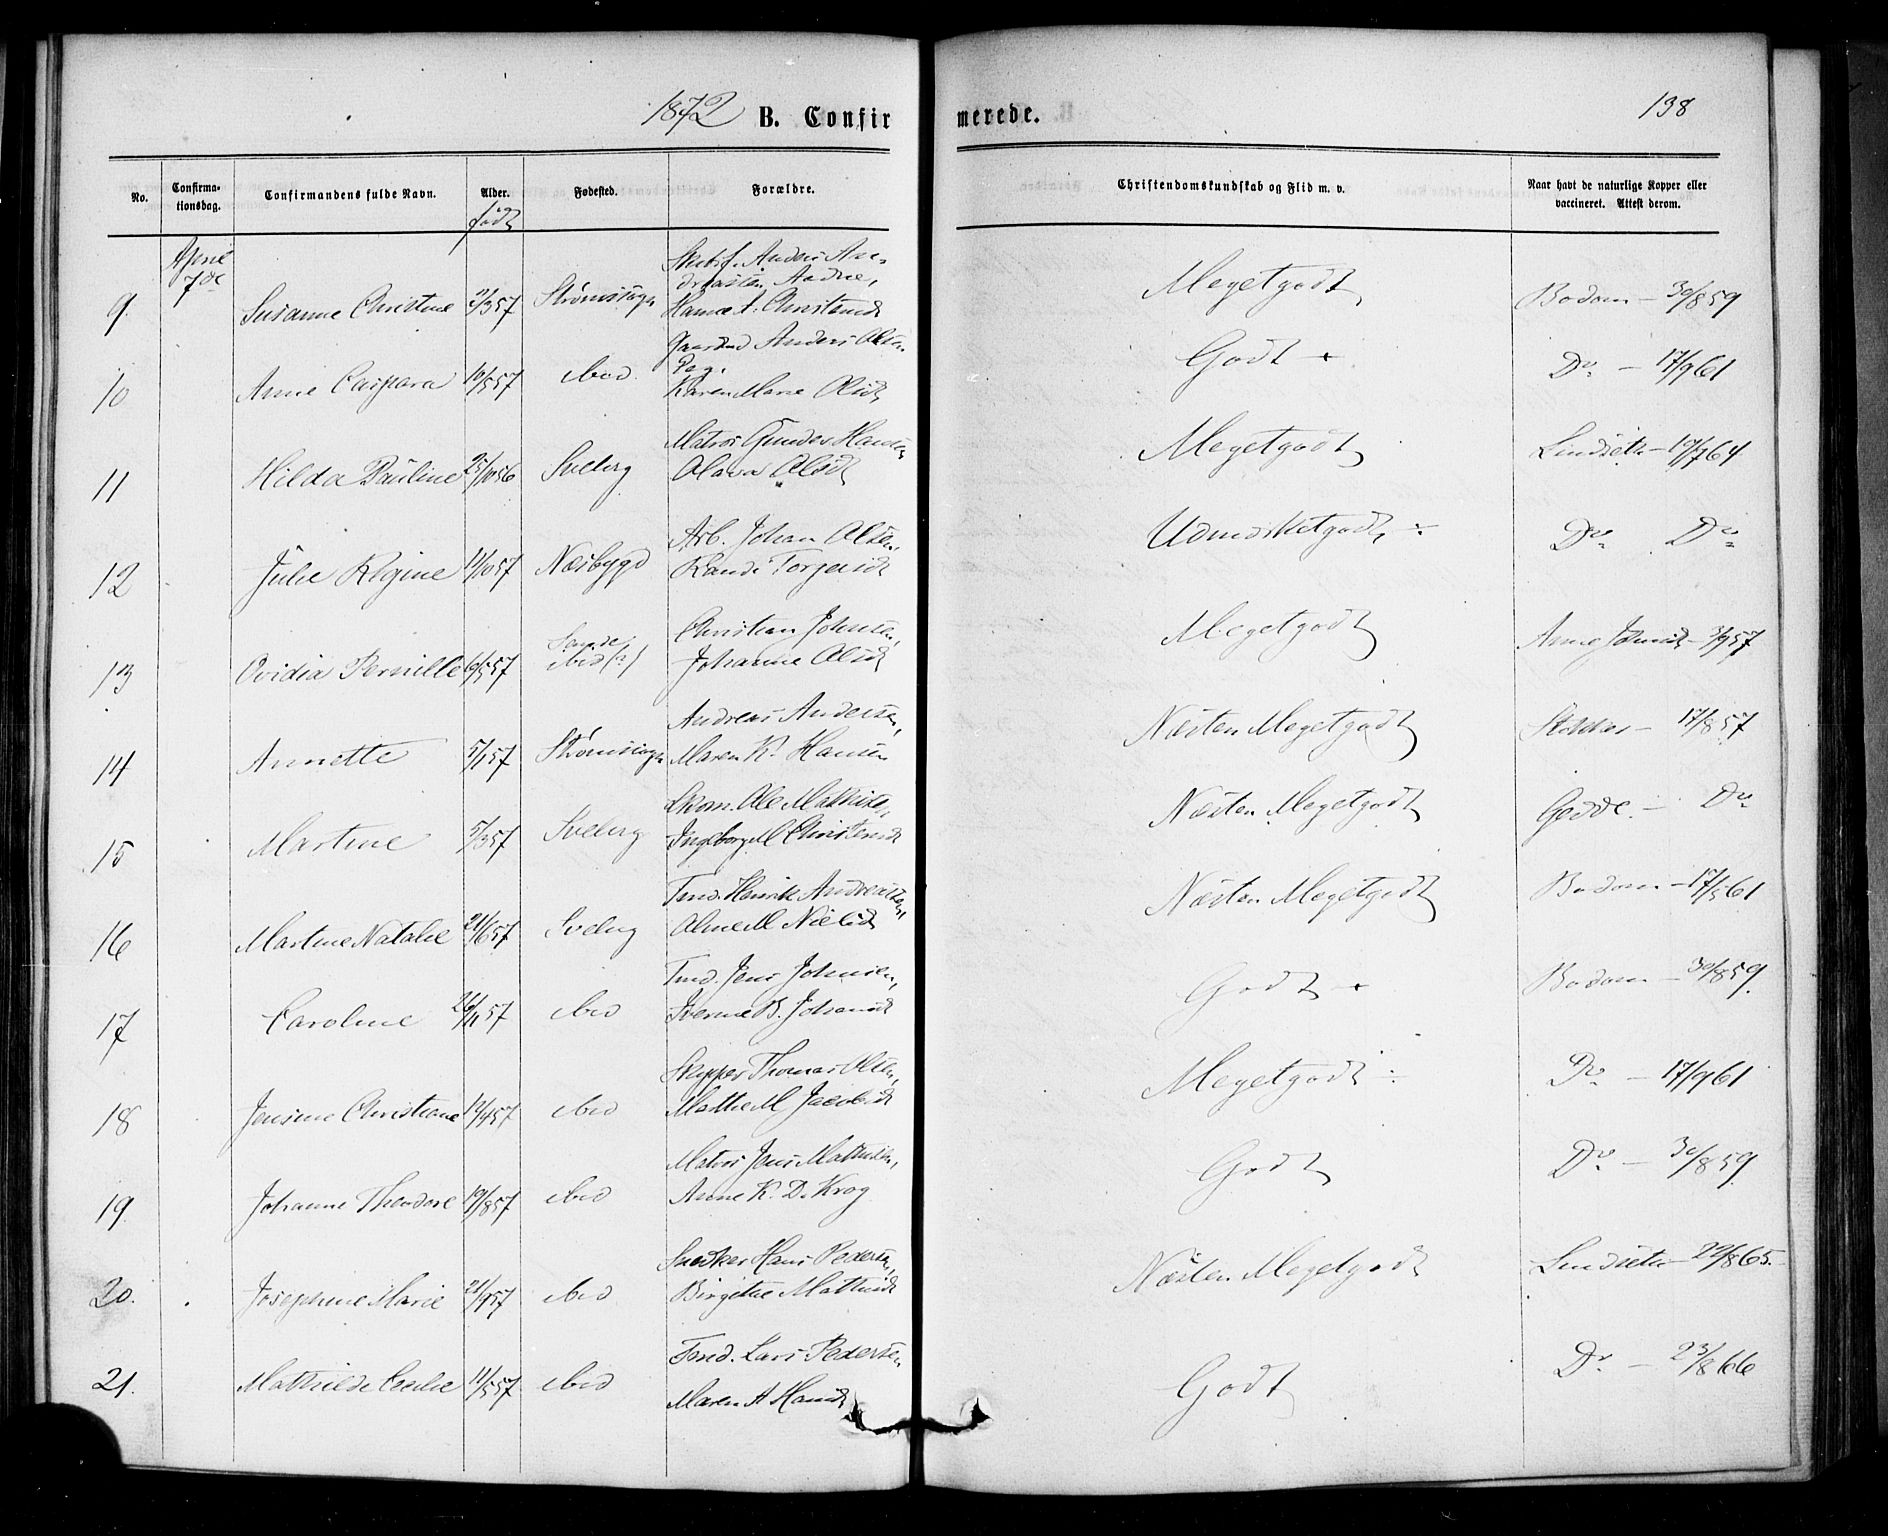 1872 B. Confir
merede.
138
No.
Confirma-
tionsdag.
Confirmandens fulde Navn.
Alder.
født
Fødested.
Forældre.
Christendomskundskab og Flid m. v.
Naar havt de naturlige Kopper eller
vaccineret. Attest derom.
April
7de
9. Susanne Christine 2/357 Strømssogn
Anders
Meget godt
Bodom - 30/859
10 Anne Caspara 16/557 ibid.
Gaardmd Anders Olsen
Karen Marie Olsd.
Godt
Do - 17/961
11 Hilda Pauline 25/1056 Svelvig
Matros Gunder Hansen
Olava Olsd.
Meget godt
Lindseth - 19/764
12 Julie Regine 11/1057 Næsbygd
Arb. Johan Olsen,
Randi Torgersd.
Udmærket godt
Do Do
13 Ovidia Pernille 6/557
Sande
ibid (?)
Christian Johnsen,
Johanne Olsd.
Meget godt
Anne Johnsd. 3/957
14 Annette 5/157 Strømssogn
Andreas Andersen,
Maren K. Hansen
Næsten Meget godt
17/857
15 Martine 5/357 Svelvig
Skom. Ole Mathisen,
Ingeborg M Christensd.
Næsten Meget godt
Gedde. - Do
16 Martine Natalie 21/657 Svelvig
Tmd. Henrik Andreassen,
M Nielsd.
Næsten Meget godt
Bodom - 17/961
17 Caroline 26/1157 ibid
Tmd. Jens Johnsen,
B. Johansd.
Godt
Bodom - 30/859.
18 Jensine Christiane 12/457 ibid
Skipper Thomas Olsen,
Mathe M Jacobsd.
Meget godt
Do - 17/961
19. Johanne Theodore 19/857 ibid
Matros Jens Mathisen,
Anne K. D. Krog
Godt
Do - 30/859.
20. Josephine Marie 21/957 ibid
Snedker Hans Pedersen,
Birgithe Mathisd.
Næsten Meget godt
Lindseth - 22/865.
21. Mathilde Cecilie 11/557 ibid
Tmd. Lars Pedersen
Maren A Hansd.
Godt
Do - 23/866